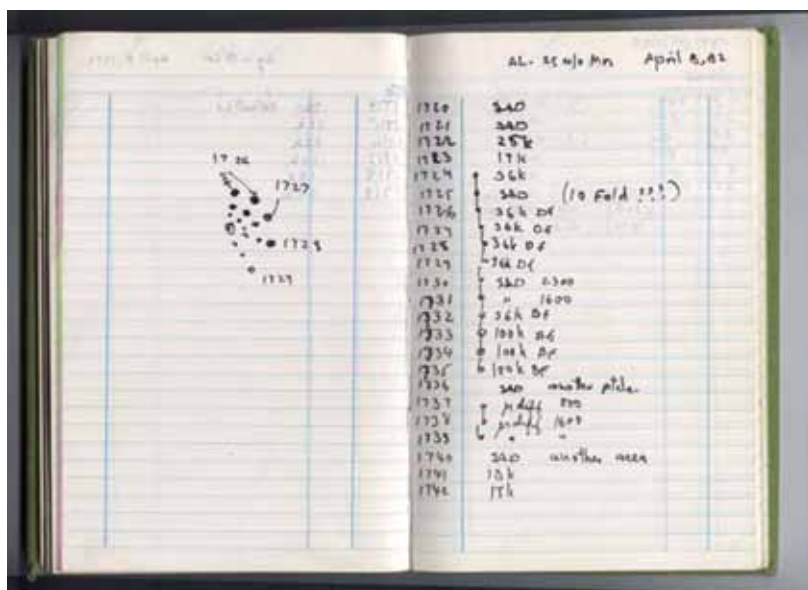 1736
1727
1728
1729
AL- 25 w/o Mn April 8, 82
1720 SAD
1721 SAD
1722 25k
1723 17k
1724 36k
1725 SAD (10 Fold ???)
1726 36k Df
1727 36k Df
1728 36k Df
1729 36k Df
1730 SAD 2300
1731 " 1600
1732 36k Bf
1733 100k Bf
1734 100k Bf
1735 100k Bf
1736 SAD another ptcle.
1737 μdiff
1738 μdiff
1739 " "
1740 SAD another area
1741
1742 17k